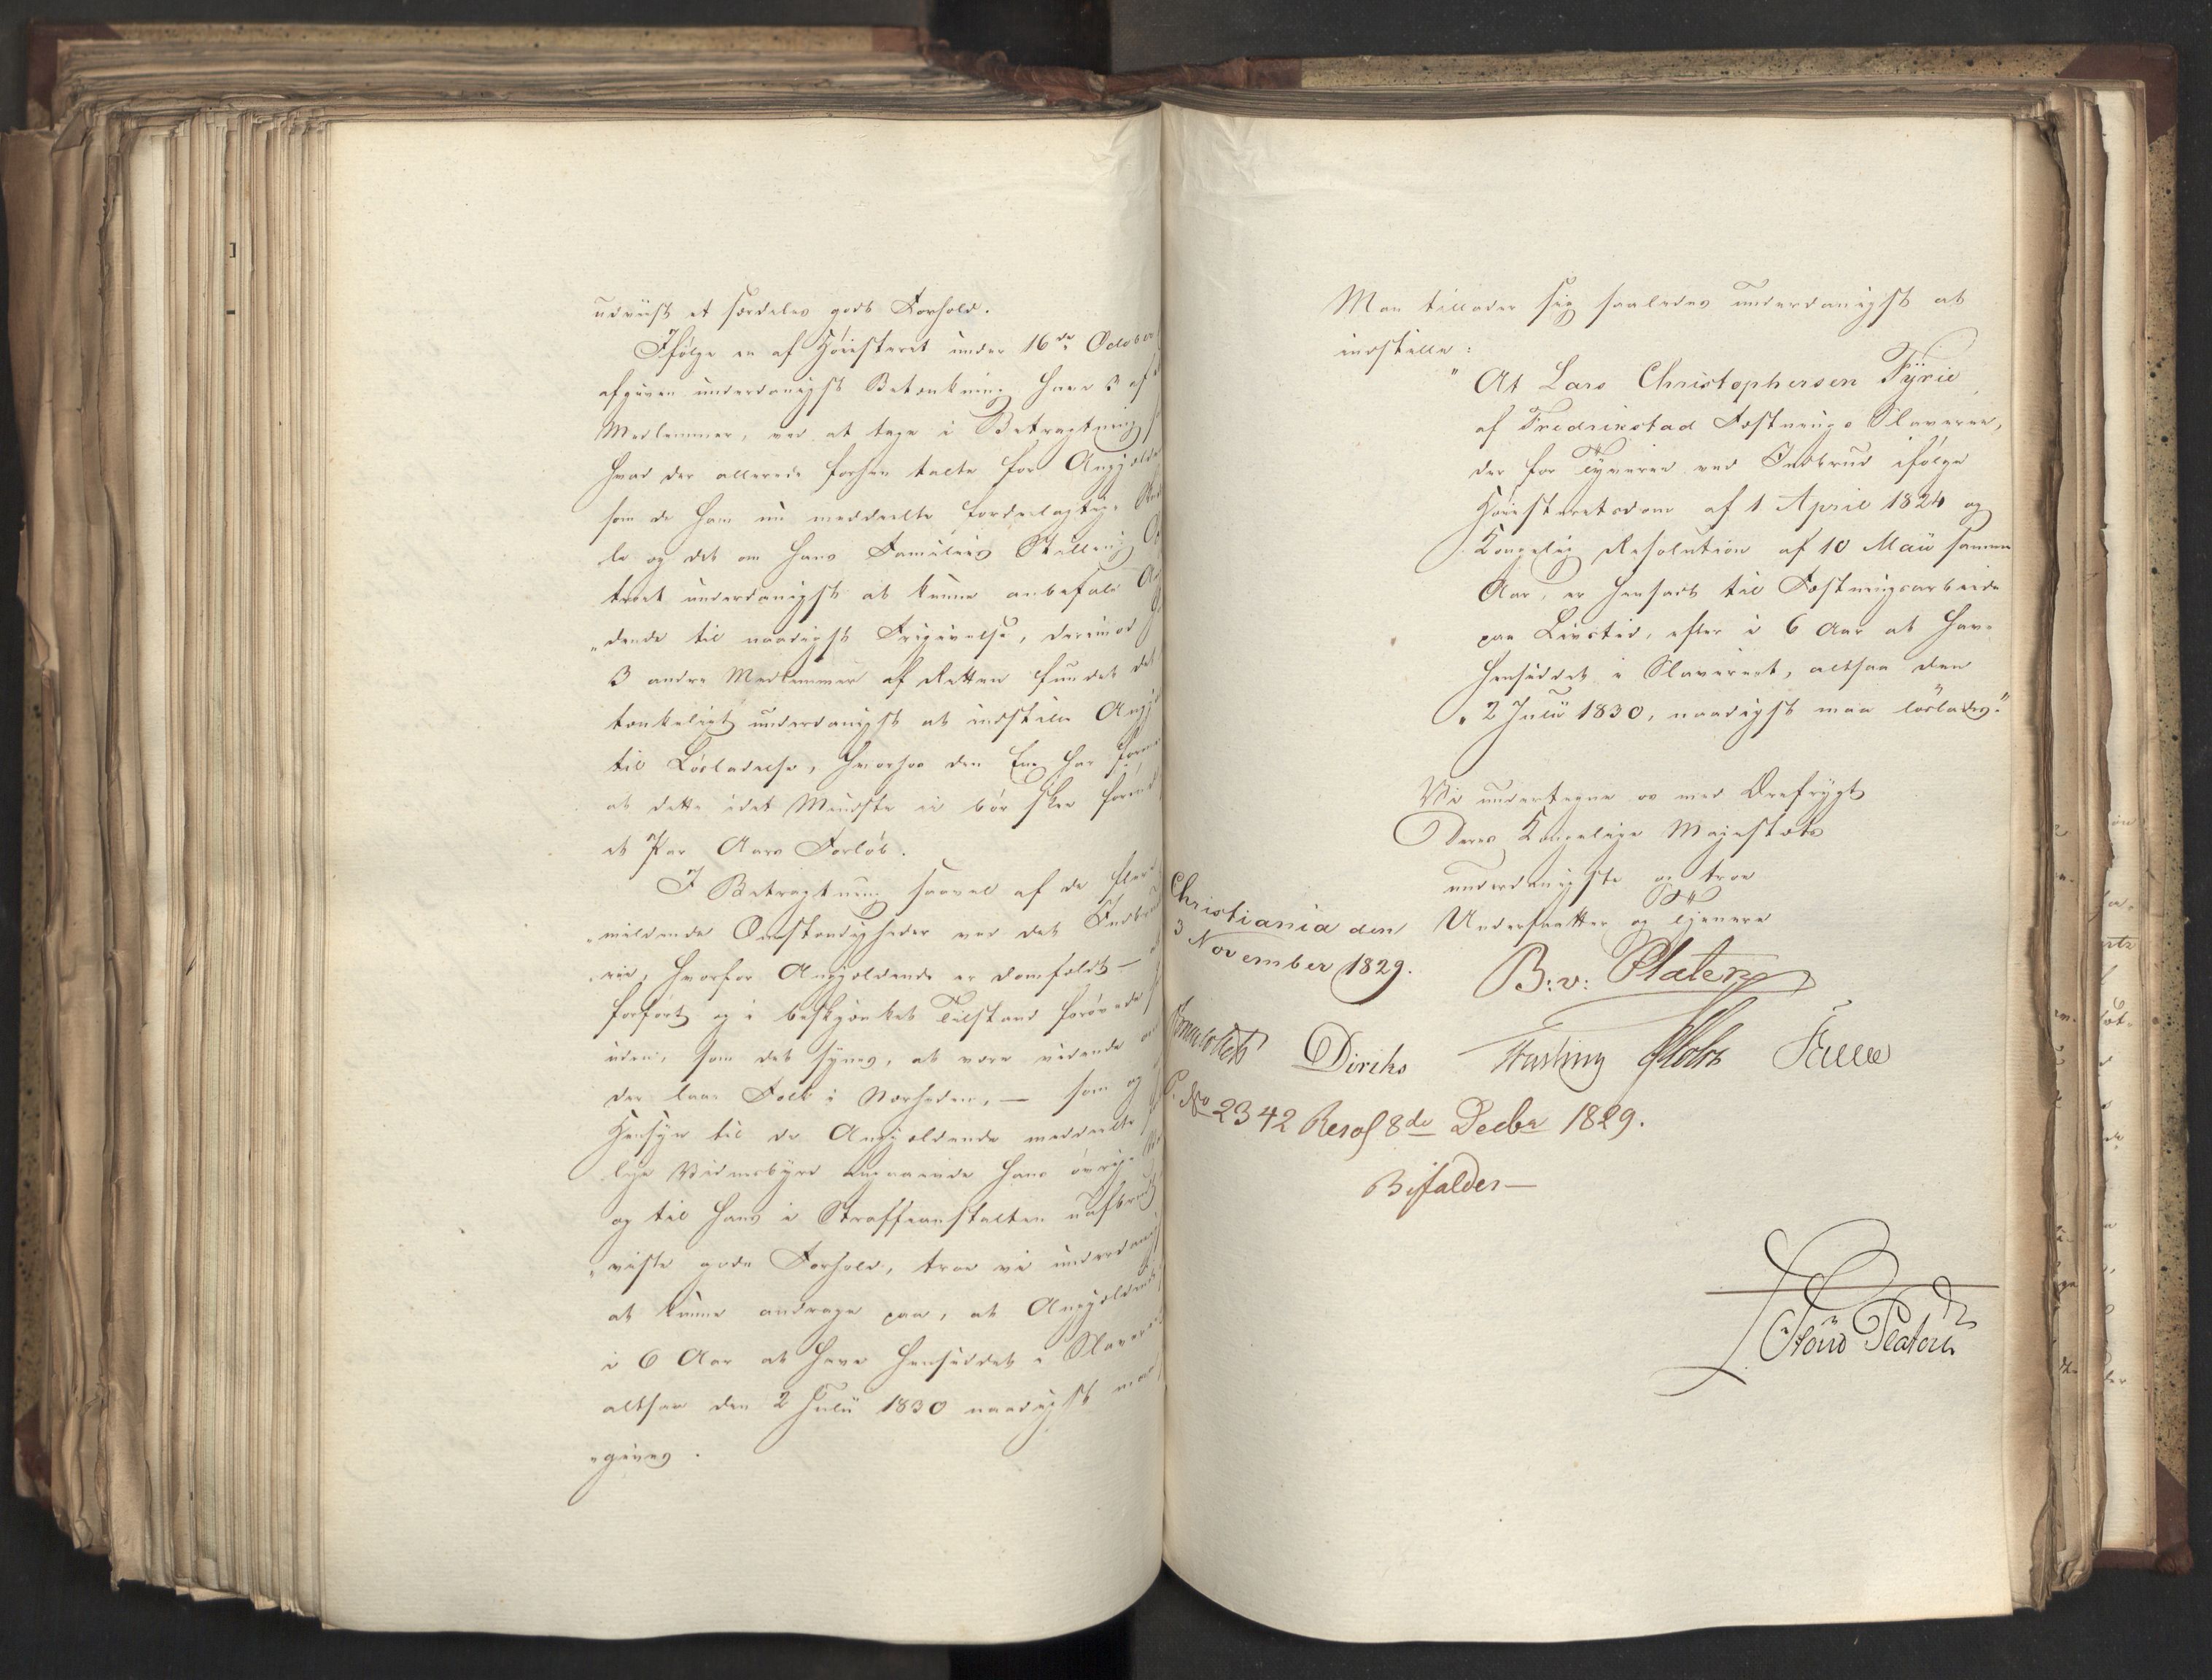 udviist et særdeles godt Forhold.
Ifølge en af Høiesteret under 16de October
afgiven underdanigst Betænkning have 3 af
Medlemmer, ved at tage i Betragtning
hvad der allerede forhen talte for Angjelde
som de ham nu meddeelte fordeelagtige
le og det om hans Families Stilling
troet underdanigst at kunne anbefale
„dende til naadigst Frigivelse, derimod
3 andre Medlemmer af Retten fundet det
tænkeligt underdanigst at indstille Angje
til Løsladelse, hvorhos den Ene har
at dette idet Mindste ei bør skee forend
et Par Aars Forløb.
I Betragtning saavel af de flere
„mildende Omstændigheder ved det Indbrud
„rie, hvorfor Angjeldende er domfældt –
forført og i beskjænket Tilstand forøvede
uden, som det synes, at være vidende om
der laae Folk i Nærheden, – som og
Hensyn til de Angjeldende meddeelte
lige Vidnesbyrd angaaende hans øvrige
og til hans i Straffeanstalten uafbrudt
„viste gode Forhold, troe vi underdanig
at kunne andrage paa, at Angjeldende
i 6 Aar at have hensiddet i Slaveriet
altsaa den 2 Julii 1830 naadigst maa
„gives.
Man tillader sig saaledes underdanigst at
indstille:
"At Lars Christophersen Tyrie,
af Fredrikstad Fæstnings Slaverie,
der for Tyverie ved Indbrud ifølge
Høiesteretsdom af 1 April 1824 og
Kongelig Resolution af 10 Maii samme
Aar, er hensadt til Fæstningsarbeide
paa Livstid, efter i 6 Aar at have
hensiddet i Slaveriet, altsaa den
„2 Julii 1830, naadigst maa løslades."
Vi undertegne os med Ærefrygt
Deres Kongelige Majestæts
underdanigste og troe
Undersaatter og Tjenere
Christiania den
3 November 1829.
B: v: Platen
Diriks Fasting Holst Falbe
P. No 2342 Resol 8de Decbr 1829.
Bifaldes –